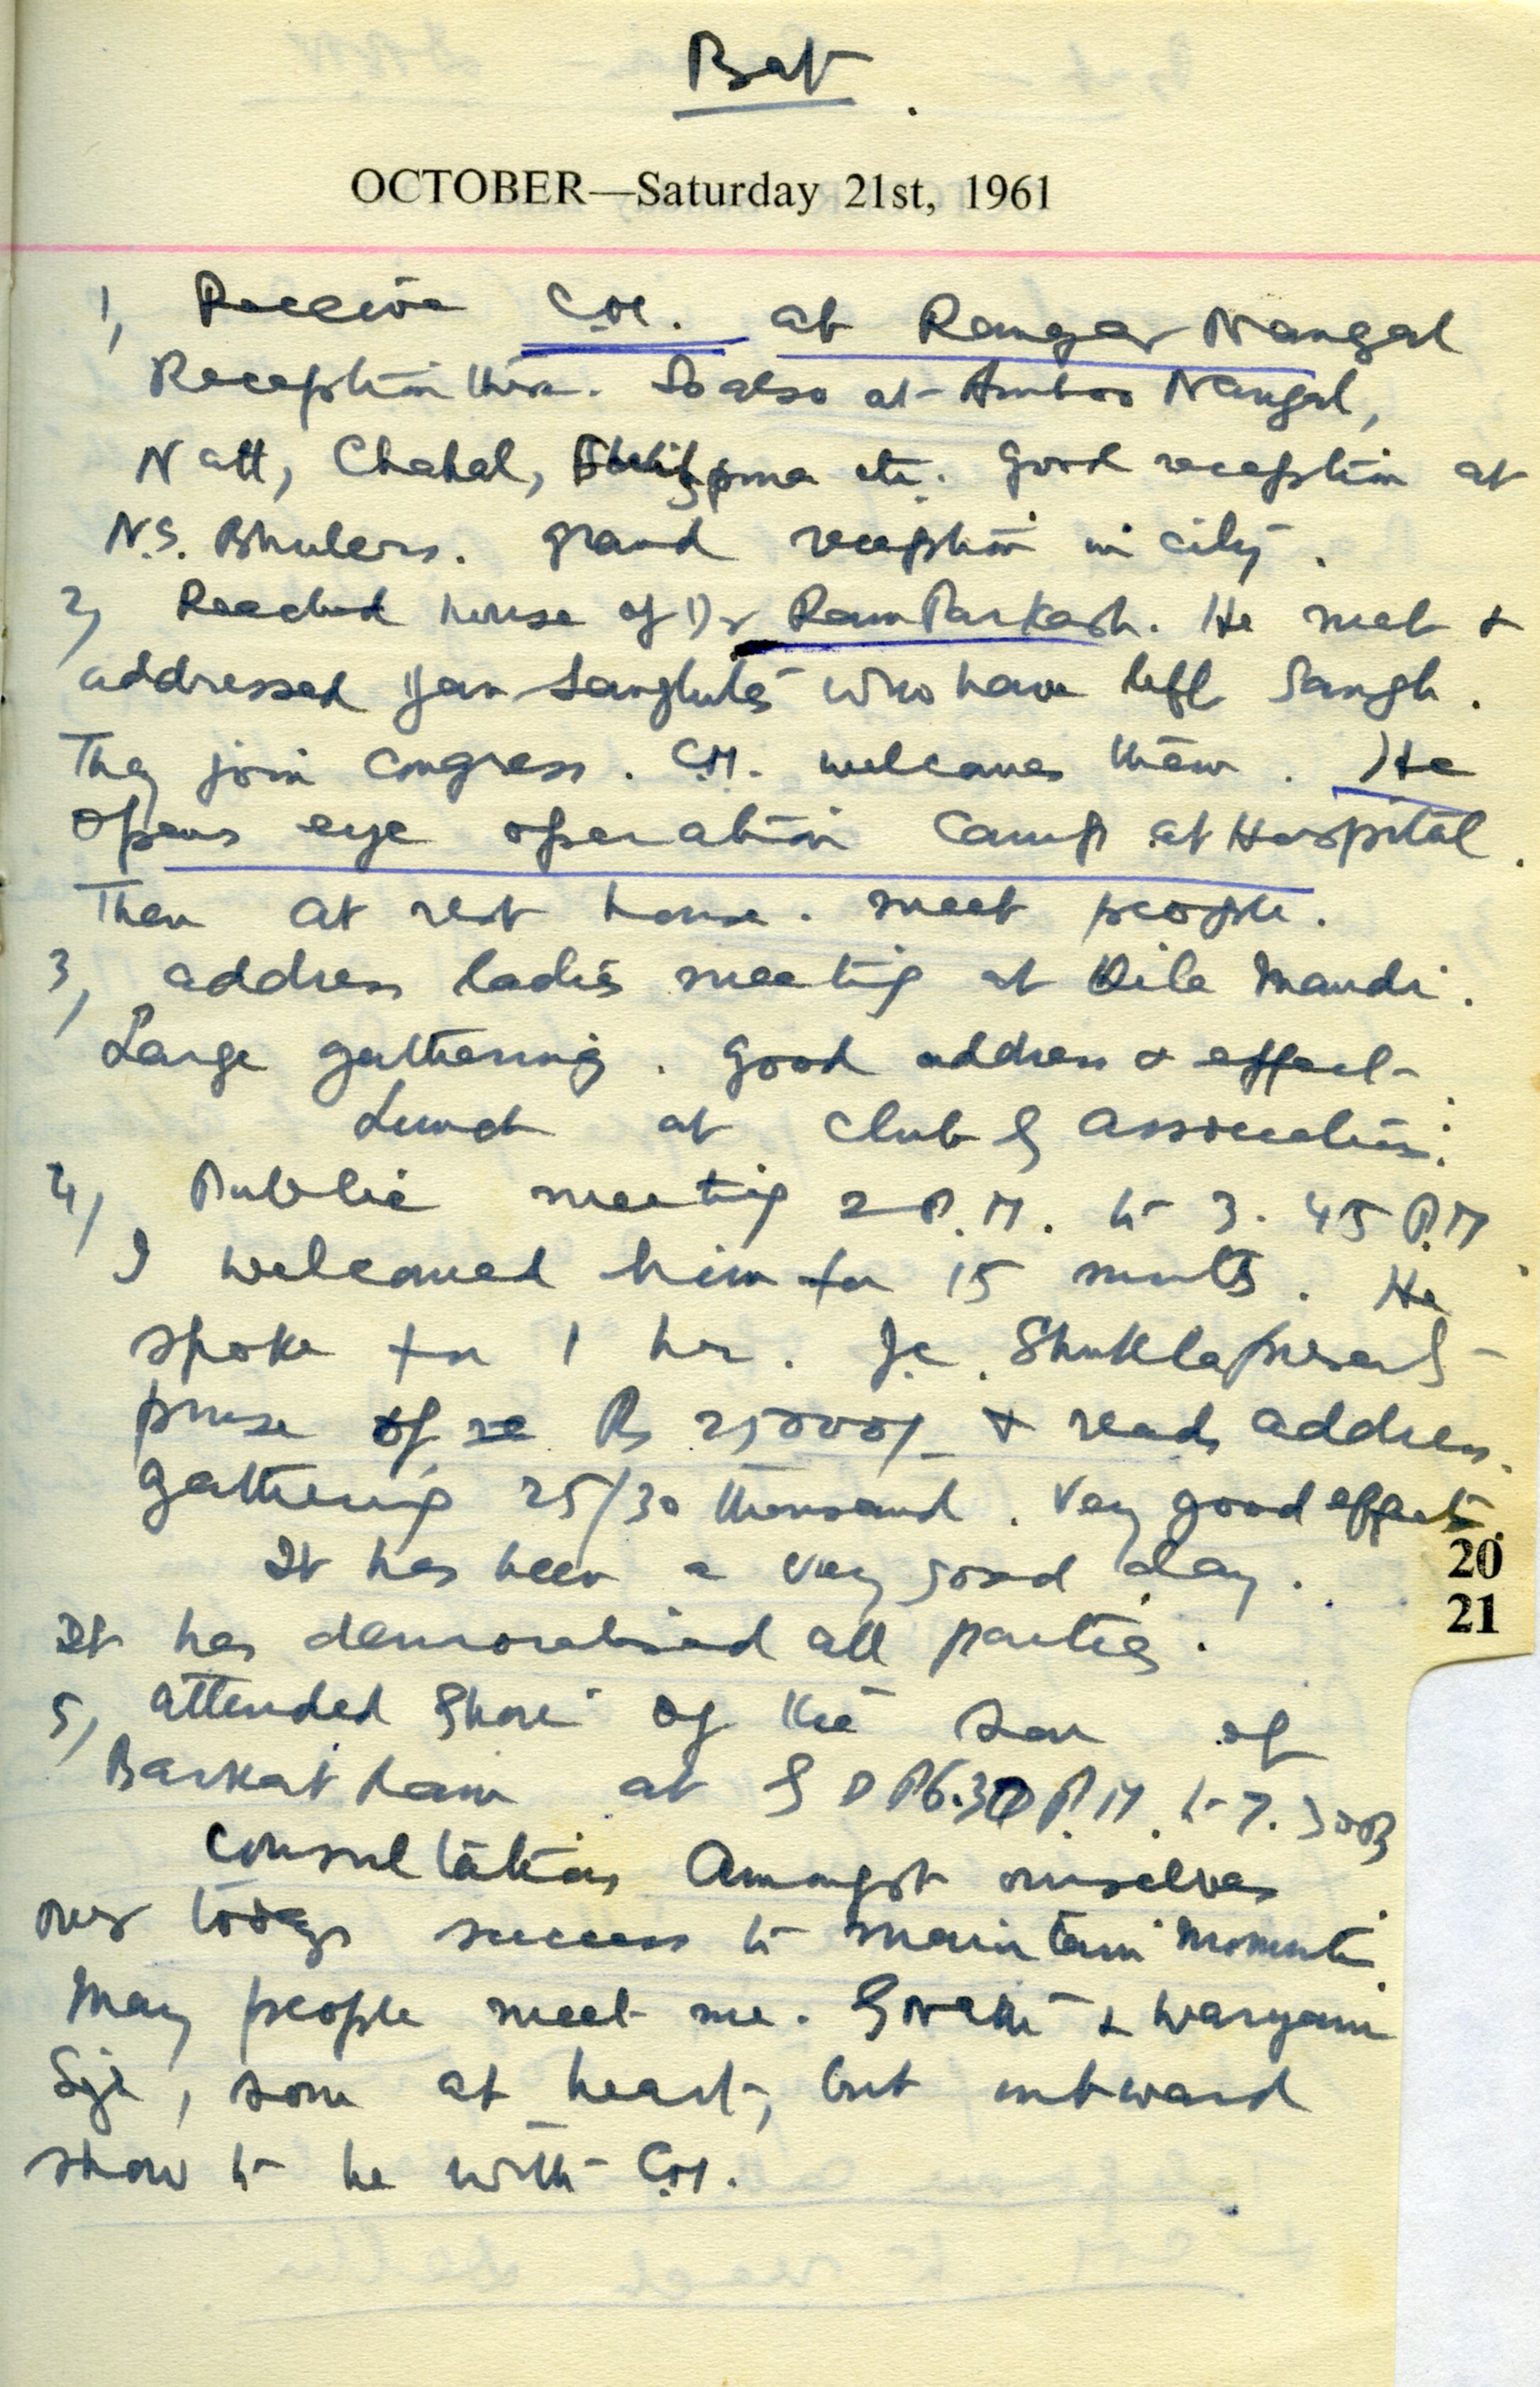 Bat.
OCTOBER—Saturday 21st, 1961
1, Receive C.M. at Rangar Nangal
Reception there. So also at Amboo Nangal,
Natt, Chahal, etc. Good reception at
N.S. Bhulers. Grand reception in city.
2, Reached house of Dr Ram Parkash. He met &
addressed Jan Sanghites who have left Sangh.
They join Congress. C.M. welcomes them. He
opens eye operation camp at Hospital.
Then at rest house. Meet people.
3, address ladies meeting at Qila Mandi.
Large gathering. Good address & effect.
Lunch at Club & association.
4, Public meeting 2 P.M. to 3.45 P.M
I welcomed him for 15 mnts. He
spoke for 1 hr. Shukla presents
purse of Rs & reads address.
Gathering 25/30 thousand. Very good effect.
It has been a very good day.
20
21
It has demoralised all parties.
5, attended of the son of
Barkat Ram at 6.30 P.M. to 7.30
Consultations amongst ourselves
over todays success to maintain
Many people meet me. & Waryam
at heart, but outward
show to be with C.M.